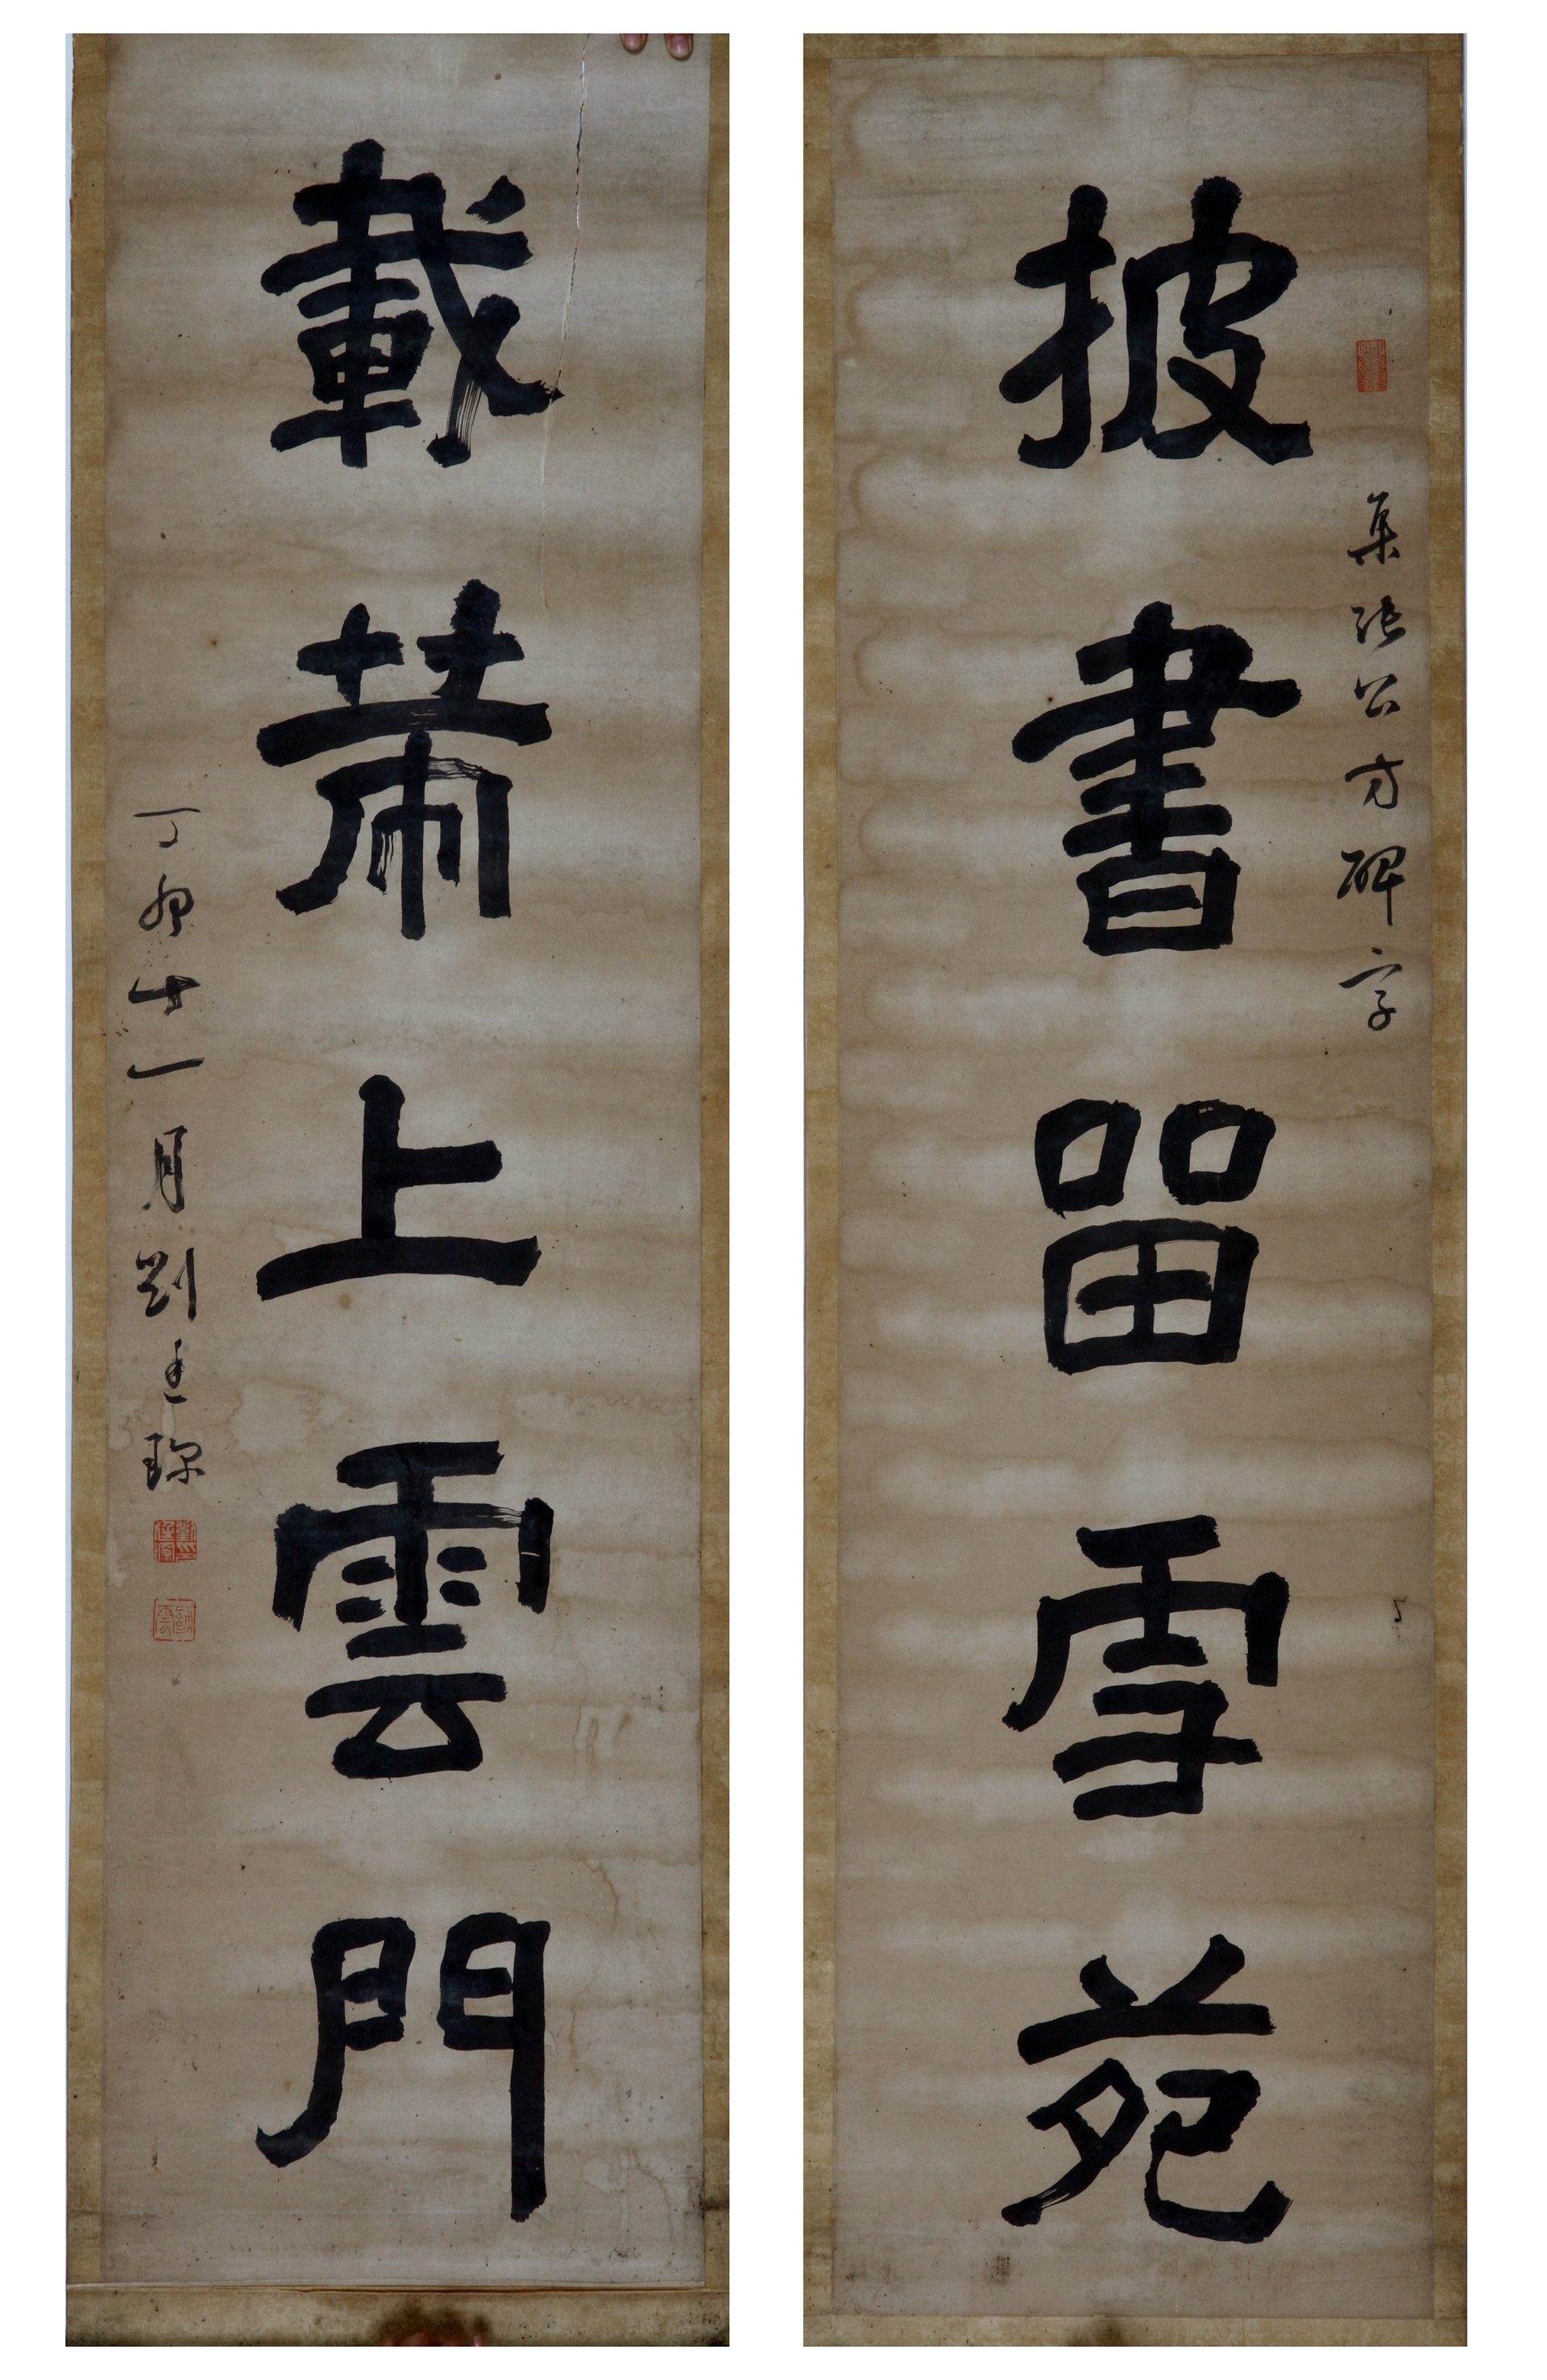 披書留雪苑
集張公方碑字
載帶上雲門
丁卯十一月劉廷琛